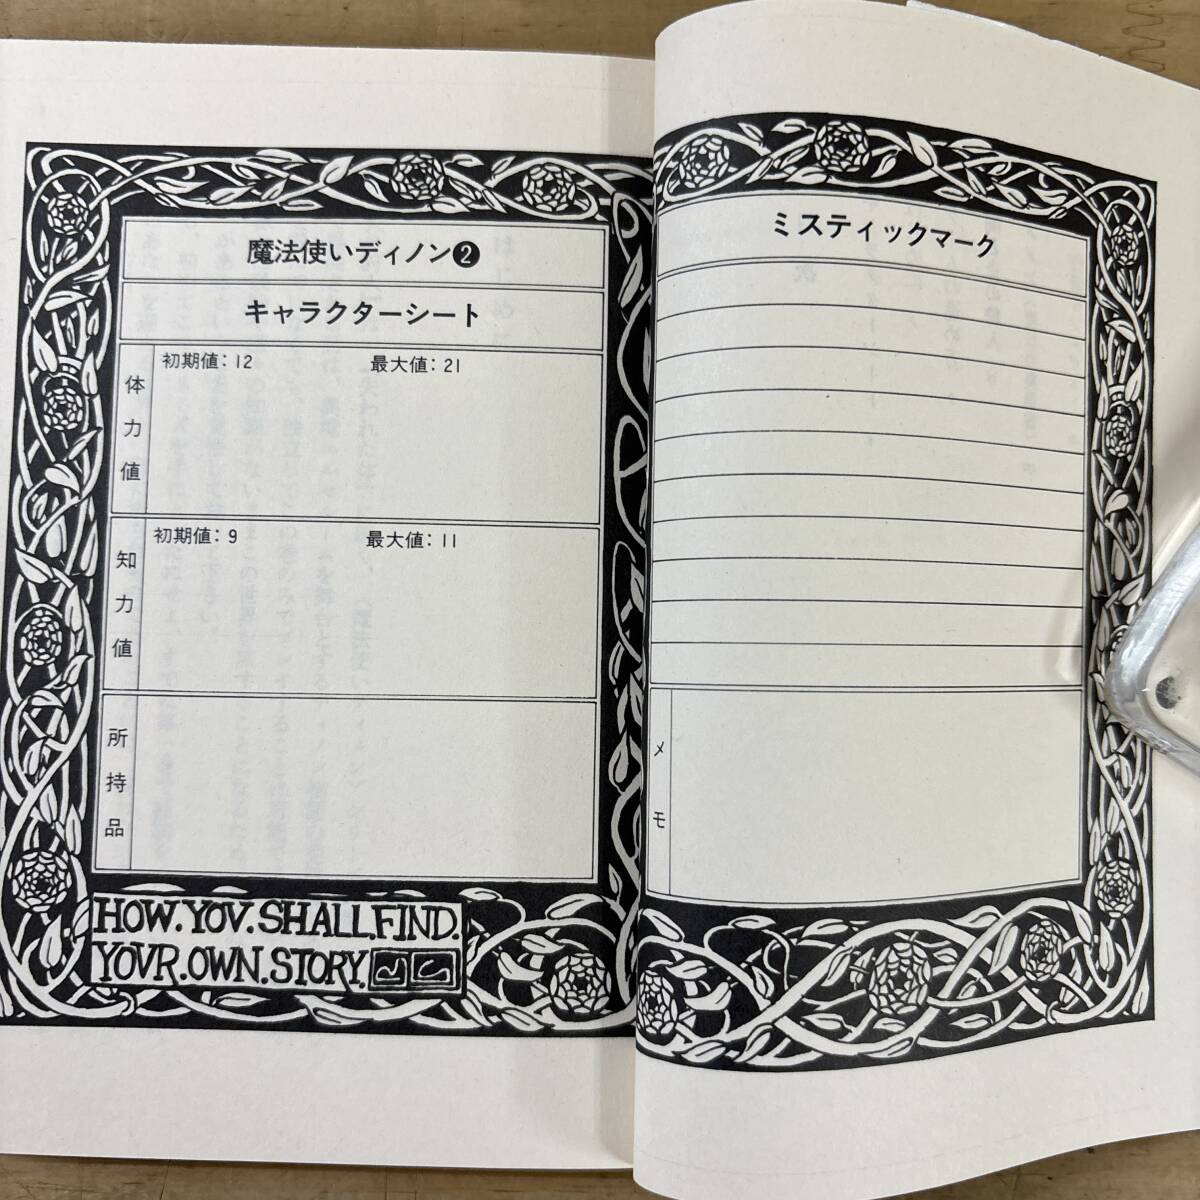 魔法使いディノン❷
キャラクターシート
体力値
初期値：12
最大値：21
知力値
初期値：9
最大値：11
所持品
HOW.YOV.SHALL.FIND.
YOVR.OWN.STORY.
ミスティックマーク
メモ